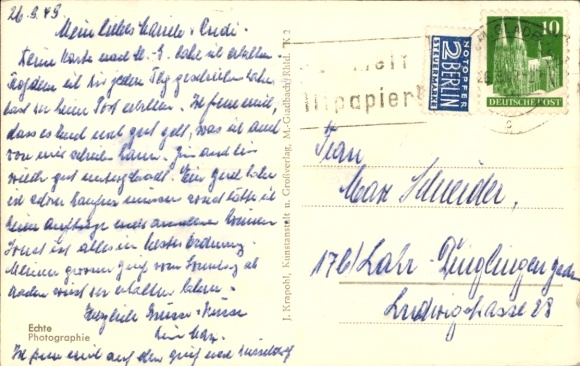 26.9.49
Mein liebes Mariele + Rudi.
Deine Karte nach M. G. habe ich erhalten.
Trotzdem ich dir jeden Tag geschrieben habe,
hast du keine Post erhalten. Ich freue mich,
dass es Euch noch gut geht, was ich auch
von mir schreiben kann. Ich bin
wieder gut untergebracht. Ein habe
ich
keine Aufträge können
Sonst ist alles in bester Ordnung.
Meinen grossen Brief vom Sonntag
wirst du erhalten haben.
Herzliche Grüsse + Küsse
Dein Max.
Ich freue mich auf den Brief nach Düsseldorf
Echte
Photographie
J. Krapohl, Kunstanstalt u. Großverlag, M.-Gladbach/Rhld. K 2
papier
NOTOPFER
2 BERLIN
STEUERMARKE
10
DEUTSCHE POST
Frau
Max Schneider,
17b/Lahr-Dinglingen
Ludwigstrasse 28